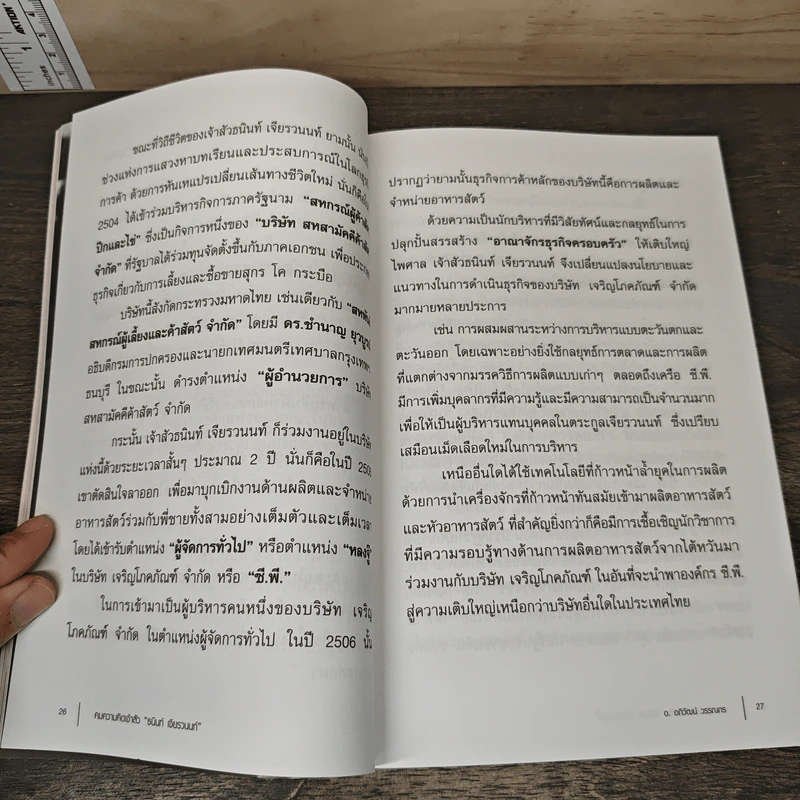 ขณะที่วิถีชีวิตของเจ้าสัวธนินท์ เจียรวนนท์ ยามนั้น
ช่วงแห่งการแสวงหาบทเรียนและประสบการณ์ในโลก
การค้า ด้วยการหันเหแปรเปลี่ยนเส้นทางชีวิตใหม่ นั่นก็คือ
2504 ได้เข้าร่วมบริหารกิจการภาครัฐนาม “สหกรณ์ผู้ค้า
ปีกและไข่” ซึ่งเป็นกิจการหนึ่งของ “บริษัท สหสามัคคีค้า
จำกัด” ที่รัฐบาลได้ร่วมทุนจัดตั้งขึ้นกับภาคเอกชน เพื่อ
ธุรกิจเกี่ยวกับการเลี้ยงและซื้อขายสุกร โค กระบือ
บริษัทนี้สังกัดกระทรวงมหาดไทย เช่นเดียวกับ
สหกรณ์ผู้เลี้ยงและค้าสัตว์ จำกัด” โดยมี ดร.ชำนาญ
อธิบดีกรมการปกครองและนายกเทศมนตรีเทศบาลกรุงเทพฯ
ธนบุรี ในขณะนั้น ดำรงตำแหน่ง “ผู้อำนวยการ” บริษัท
สหสามัคคีค้าสัตว์ จำกัด
กระนั้น เจ้าสัวธนินท์ เจียรวนนท์ ก็ร่วมงานอยู่ในบริษัท
แห่งนี้ด้วยระยะเวลาสั้นๆ ประมาณ 2 ปี นั่นก็คือในปี
เขาตัดสินใจลาออก เพื่อมาบุกเบิกงานด้านผลิตและจำหน่าย
อาหารสัตว์ร่วมกับพี่ชายทั้งสามอย่างเต็มตัวและเต็มเวลา
โดยได้เข้ารับตำแหน่ง “ผู้จัดการทั่วไป” หรือตำแหน่ง “หลงจู๊”
ในบริษัท เจริญโภคภัณฑ์ จำกัด หรือ “ซี.พี.”
ในการเข้ามาเป็นผู้บริหารคนหนึ่งของบริษัท เจริญ
โภคภัณฑ์ จำกัด ในตำแหน่งผู้จัดการทั่วไป ในปี 2506 นั้น
26
คมความคิดเจ้าสัว “ธนินท์ เจียรวนนท์”
ปรากฏว่ายามนั้นธุรกิจการค้าหลักของบริษัทนี้คือการผลิตและ
จำหน่ายอาหารสัตว์
ด้วยความเป็นนักบริหารที่มีวิสัยทัศน์และกลยุทธ์ในการ
ปลุกปั้นสรรสร้าง “อาณาจักรธุรกิจครอบครัว” ให้เติบใหญ่
ไพศาล เจ้าสัวธนินท์ เจียรวนนท์ จึงเปลี่ยนแปลงนโยบายและ
แนวทางในการดำเนินธุรกิจของบริษัท เจริญโภคภัณฑ์ จำกัด
มากมายหลายประการ
เช่น การผสมผสานระหว่างการบริหารแบบตะวันตกและ
ตะวันออก โดยเฉพาะอย่างยิ่งใช้กลยุทธ์การตลาดและการผลิต
ที่แตกต่างจากมรรควิธีการผลิตแบบเก่าๆ ตลอดถึงเครือ ซี.พี.
มีการเพิ่มบุคลากรที่มีความรู้และมีความสามารถเป็นจำนวนมาก
เพื่อให้เป็นผู้บริหารแทนบุคคลในตระกูลเจียรวนนท์ ซึ่งเปรียบ
เสมือนเม็ดเลือดใหม่ในการบริหาร
เหนืออื่นใดได้ใช้เทคโนโลยีที่ก้าวหน้าล้ำยุคในการผลิต
ด้วยการนำเครื่องจักรที่ก้าวหน้าทันสมัยเข้ามาผลิตอาหารสัตว์
และหัวอาหารสัตว์ ที่สำคัญยิ่งกว่าก็คือมีการเชื้อเชิญนักวิชาการ
ที่มีความรอบรู้ทางด้านการผลิตอาหารสัตว์จากไต้หวันมา
ร่วมงานกับบริษัท เจริญโภคภัณฑ์ ในอันที่จะนำพาองค์กร ซี.พี.
สู่ความเติบใหญ่เหนือกว่าบริษัทอื่นใดในประเทศไทย
อ. อภิวัฒน์ วรรณกร
27